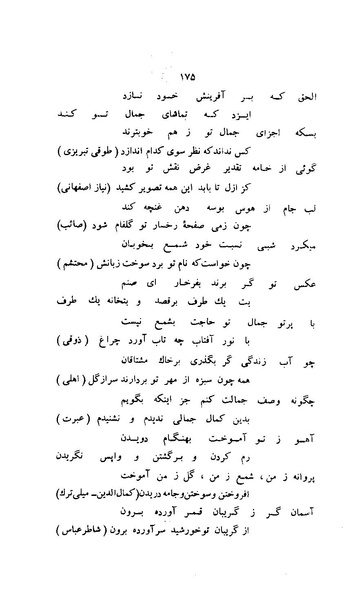 ۱۷۵
الحق که بر آفرینش خود نازد
ایزد که تماشای جمال تو کند
بسکه اجزای جمال تو ز هم خوبترند
کس نداند که نظر سوی کدام اندازد (طوقی تبریزی)
گوئی از خامه تقدیر غرض نقش تو بود
کز ازل تا بابد این همه تصویر کشید (نیاز اصفهانی)
لب جام از هوس بوسه دهن غنچه کند
چون زمی صفحهٔ رخسار تو گلفام شود (صائب)
میکرد شبی نسبت خود شمع بخوبان
چون خواست که نام تو برد سوخت زبانش (محتشم)
عکس تو گر برند بفرخار ای صنم
بت یك طرف برقصد و بتخانه یك طرف
با پرتو جمال تو حاجت بشمع نیست
با نور آفتاب چه تاب آورد چراغ (ذوقی)
چو آب زندگی گر بگذری برخاك مشتاقان
همه چون سبزه از مهر تو بردارند سرازگل (اهلی)
چگونه وصف جمالت کنم جز اینکه بگویم
بدین کمال جمالی ندیدم و نشنیدم (عبرت)
آهو ز تو آموخت بهنگام دویدن
رم کردن و برگشتن و واپس نگریدن
پروانه ز من، شمع ز من، گل ز من آموخت
افروختن و سوختن و جامه دریدن (کمال الدین ـ میلی ترك)
آسمان گر ز گریبان قمر آورده برون
از گریبان تو خورشید سر آورده برون (شاطرعباس)